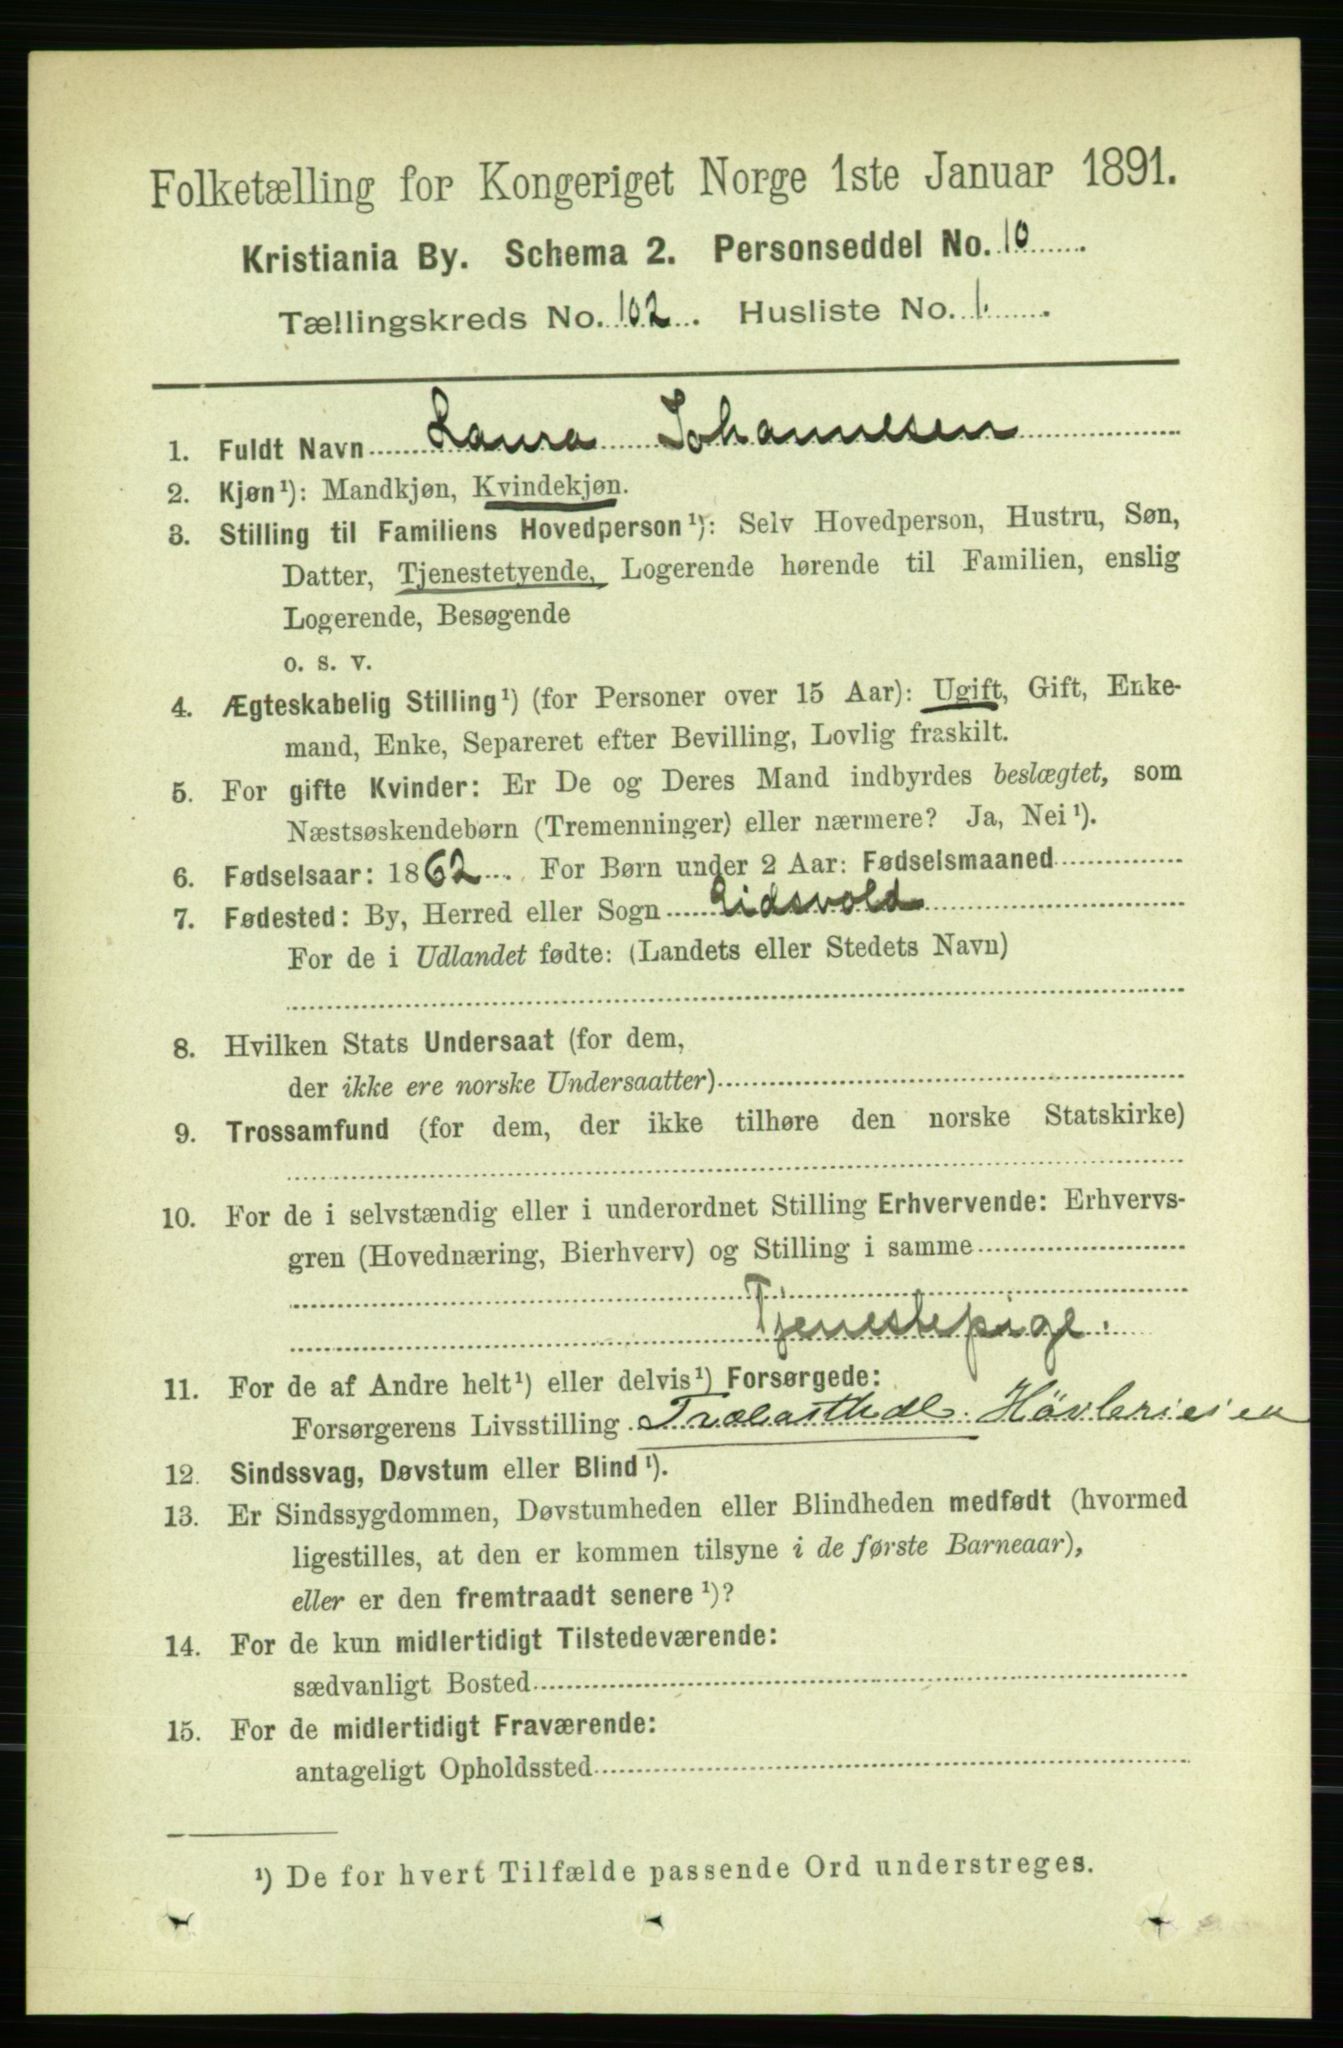 Folketælling for Kongeriget Norge 1ste Januar 1891.
Kristiania By. Schema 2. Personseddel No. 10
Tællingskreds No. 102. Husliste No. 1.
1. Fuldt Navn Laura Johannesen
2. Kjøn¹): Mandkjøn, Kvindekjøn.
3. Stilling til Familiens Hovedperson¹): Selv Hovedperson, Hustru, Søn,
Datter, Tjenestetyende, Logerende hørende til Familien, enslig
Logerende, Besøgende
o. s. v.
4. Ægteskabelig Stilling¹) (for Personer over 15 Aar): Ugift, Gift, Enke-
mand, Enke, Separeret efter Bevilling, Lovlig fraskilt.
5. For gifte Kvinder: Er De og Deres Mand indbyrdes beslægtet, som
Næstsøskendebørn (Tremenninger) eller nærmere? Ja, Nei¹).
6. Fødselsaar: 1862. For Børn under 2 Aar: Fødselsmaaned
7. Fødested: By, Herred eller Sogn Eidsvold
For de i Udlandet fødte: (Landets eller Stedets Navn)
8. Hvilken Stats Undersaat (for dem,
der ikke ere norske Undersaatter)
9. Trossamfund (for dem, der ikke tilhøre den norske Statskirke)
10. For de i selvstændig eller i underordnet Stilling Erhvervende: Erhvervs-
gren (Hovednæring, Bierhverv) og Stilling i samme
Tjenestepige.
11. For de af Andre helt¹) eller delvis¹) Forsørgede:
Forsørgerens Livsstilling Trælasthdl.
12. Sindssvag, Døvstum eller Blind¹).
13. Er Sindssygdommen, Døvstumheden eller Blindheden medfødt (hvormed
ligestilles, at den er kommen tilsyne i de første Barneaar),
eller er den fremtraadt senere¹)?
14. For de kun midlertidigt Tilstedeværende:
sædvanligt Bosted
15. For de midlertidigt Fraværende:
antageligt Opholdssted
¹) De for hvert Tilfælde passende Ord understreges.